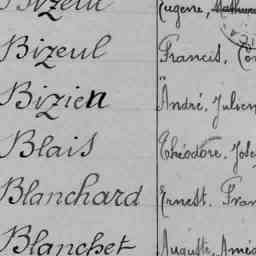 Bizeul Eugène, Mathurin
Bizeul Francis, Con
Bizien André, Julien
Blais Théodore, Jose
Blanchard Ernest, Fran
Blanchet Auguste, Amé